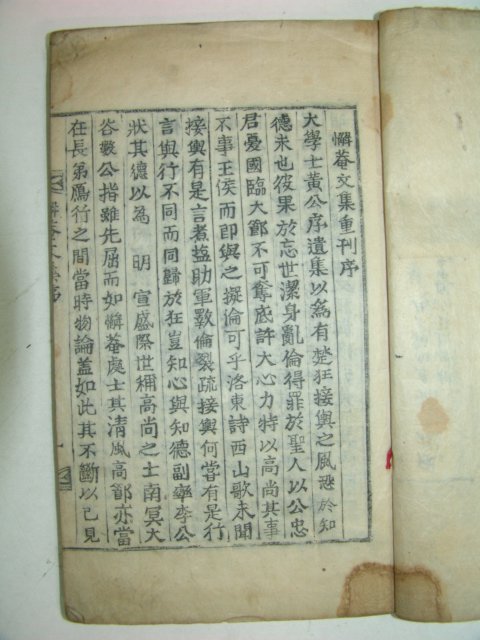 懈菴文集重刊序
大學士黃公序遺集以爲有楚狂接輿之風恐於知
德未也彼果於忘世潔身亂倫得罪於聖人以公忠
君憂國臨大節不可奪底許大心力特以高尚其事
不事王侯而卽與之擬倫可乎洛東詩西山歌未聞
接輿有是言煮塩助軍斁倫裂疏接輿何嘗有是行
言與行不同而同歸於狂豈知心與知德副率李公
狀其德以爲 明 宣盛際世稱高尚之士南冥大
谷數公指雖先屈而如懈菴處士其淸風高節亦當
在長弟鴈行之間當時物論盖如此其不斷以已見